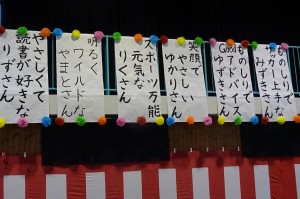 ものしりで
サッカー上手な
みずきさん
ものしりで
Goodアドバイス
ゆずきさん
笑顔
やさしい
ゆかりさん
スポーツ万能
元気な
りくさん
明るく
ワイルドな
やまとさん
やさしくて
読書が好きな
りずさん